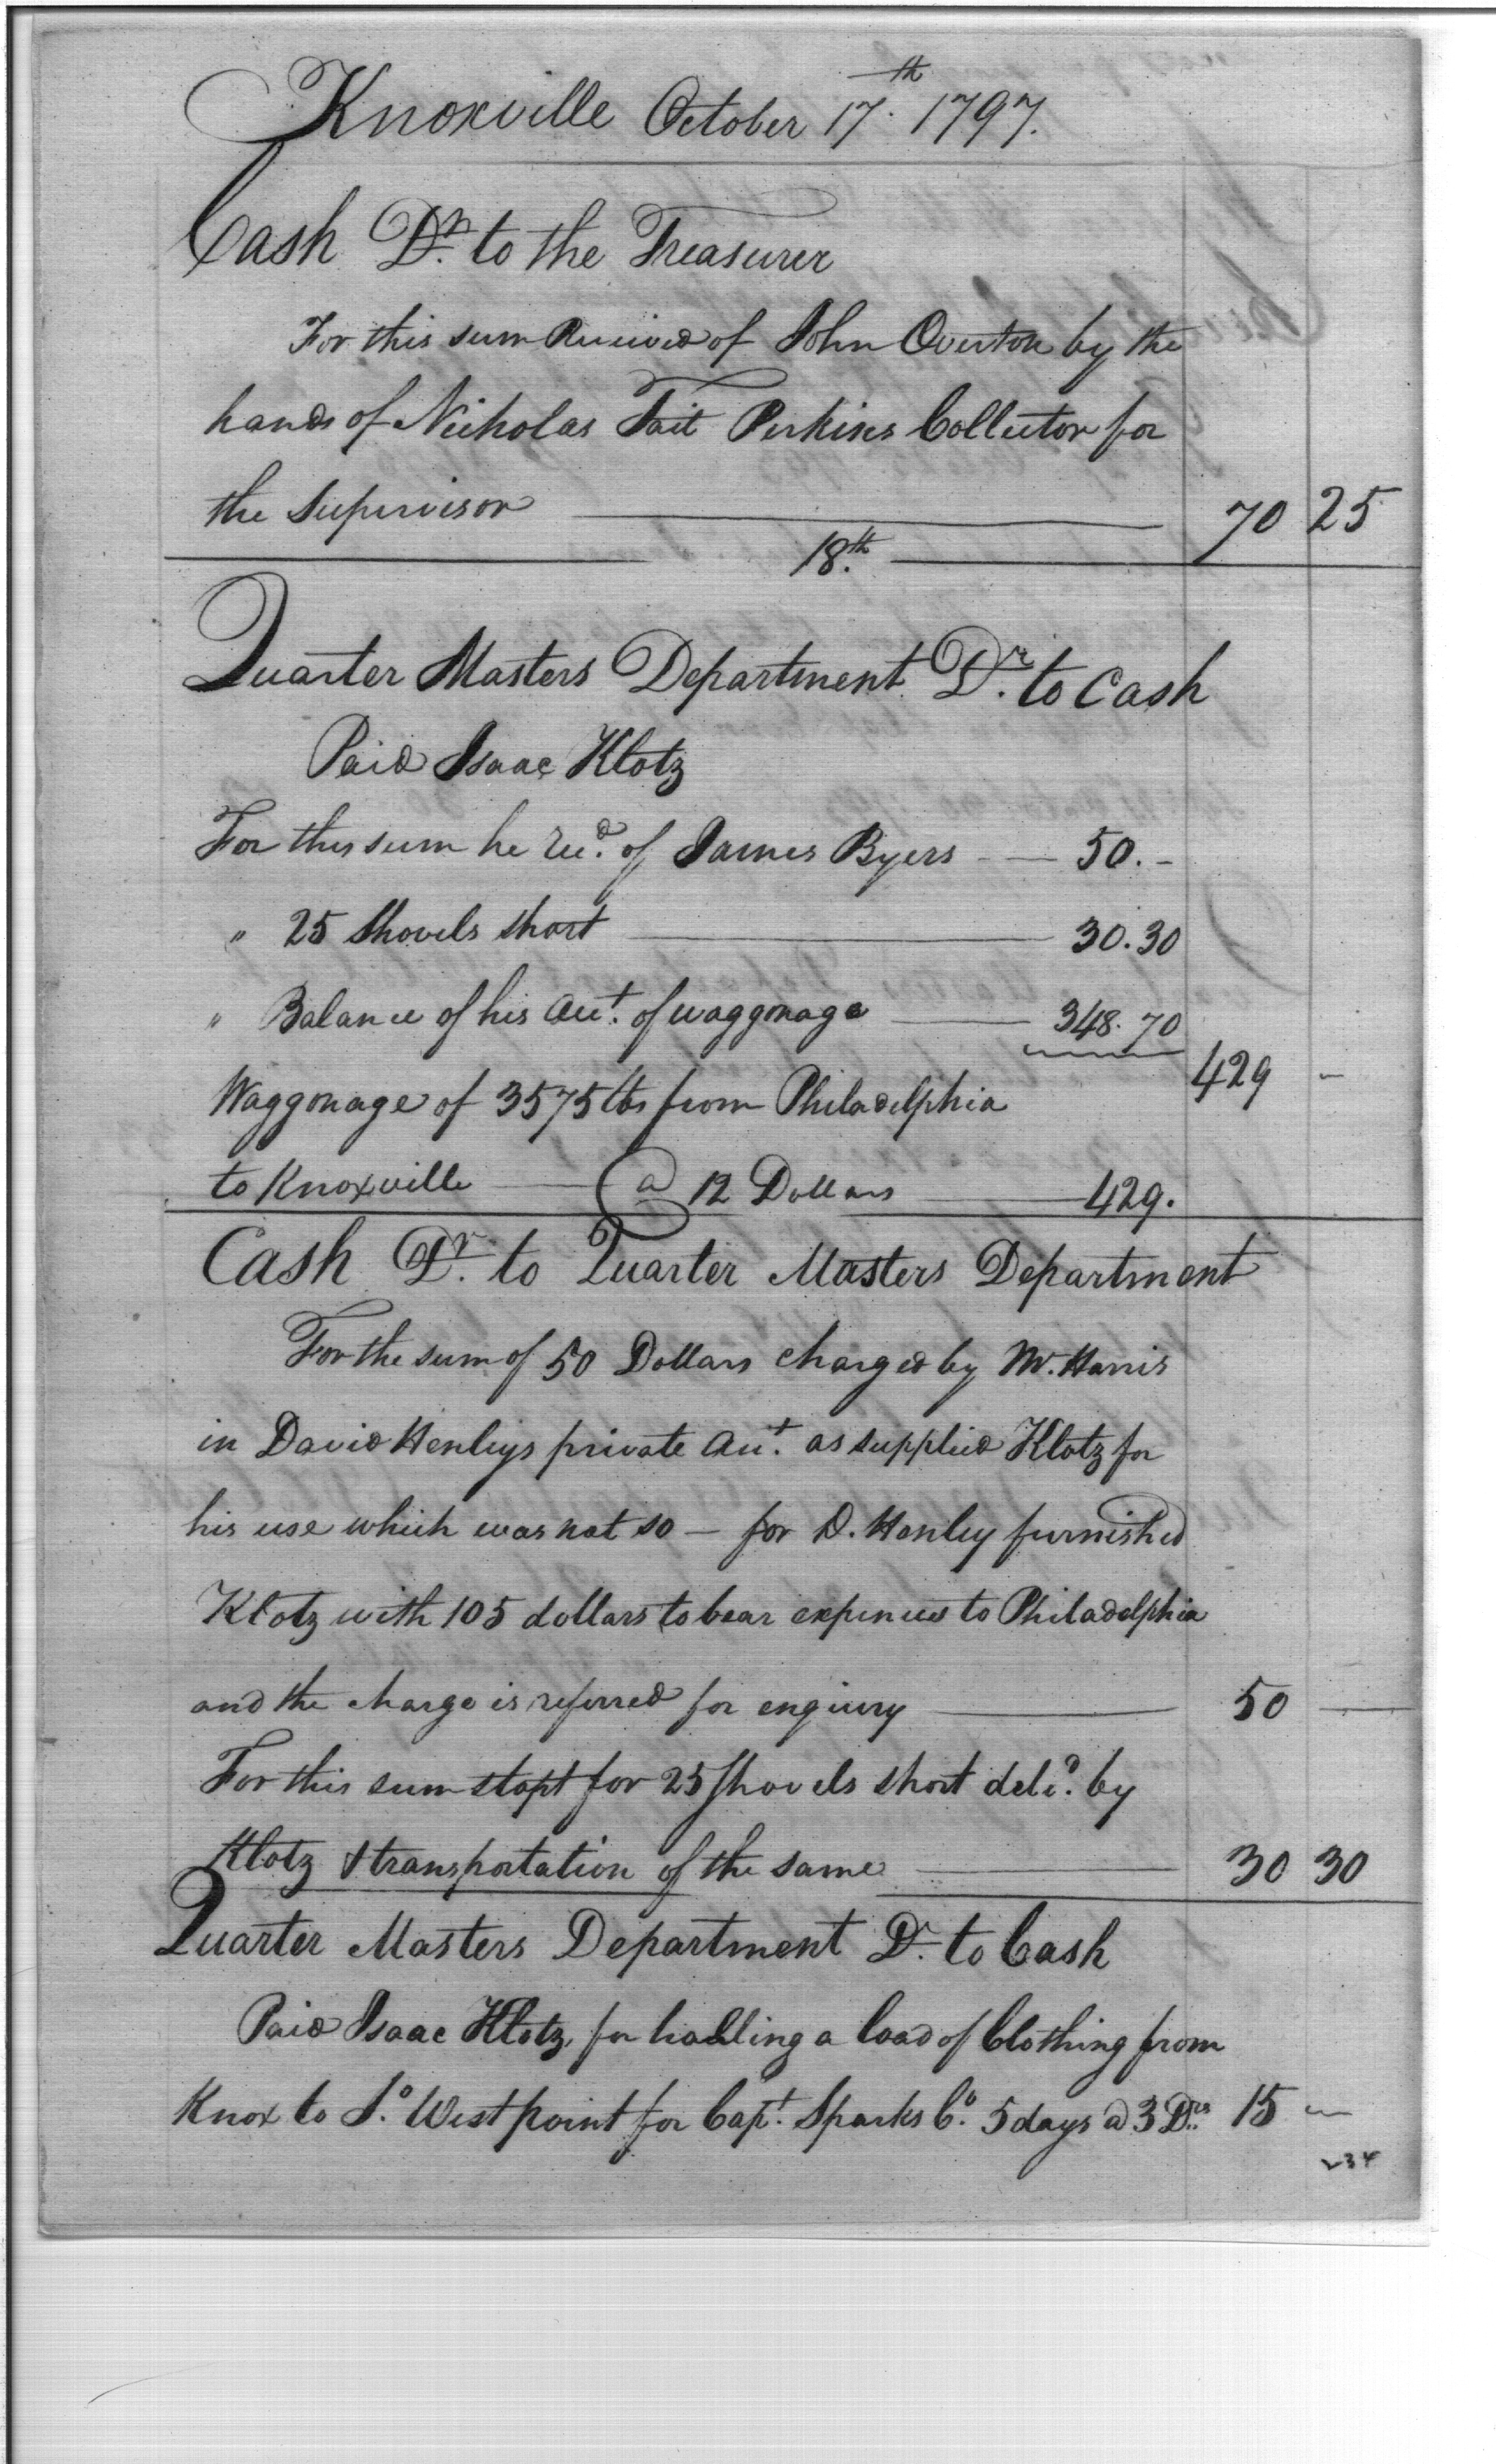 Knoxville October 17.th 1797.
Cash Dr. to the Treasurer
For this sum Received of John Overton by the
hands of Nicholas Tait Perkins Collector for
the Supervisor 70 25
18.th
Quarter Masters Department Dr. to Cash
Paid Isaac Klotz
For this sum he Recd. of James Byers 50.-
" 25 Shovels short 30.30
" Balance of his Acct. of waggonage 348.70
429 -
Waggonage of 3575 lbs from Philadelphia
to Knoxville @ 12 Dollars 429.
Cash Dr. to Quarter Masters Department
For the sum of 50 Dollars charged by Mr. Harris
in David Henleys private Acct. as supplied Klotz for
his use which was not so - for D. Henley furnished
Klotz with 105 dollars to bear expences to Philadelphia
and the charge is referred for enquiry 50 -
For this sum stopt for 25 Shovels short deld. by
Klotz & transportation of the same 30 30
Quarter Masters Department Dr. to Cash
Paid Isaac Klotz, for halling a load of Clothing from
Knox to So. West point for Capt. Sparks Co. 5 days @ 3 Drs. 15 -
234